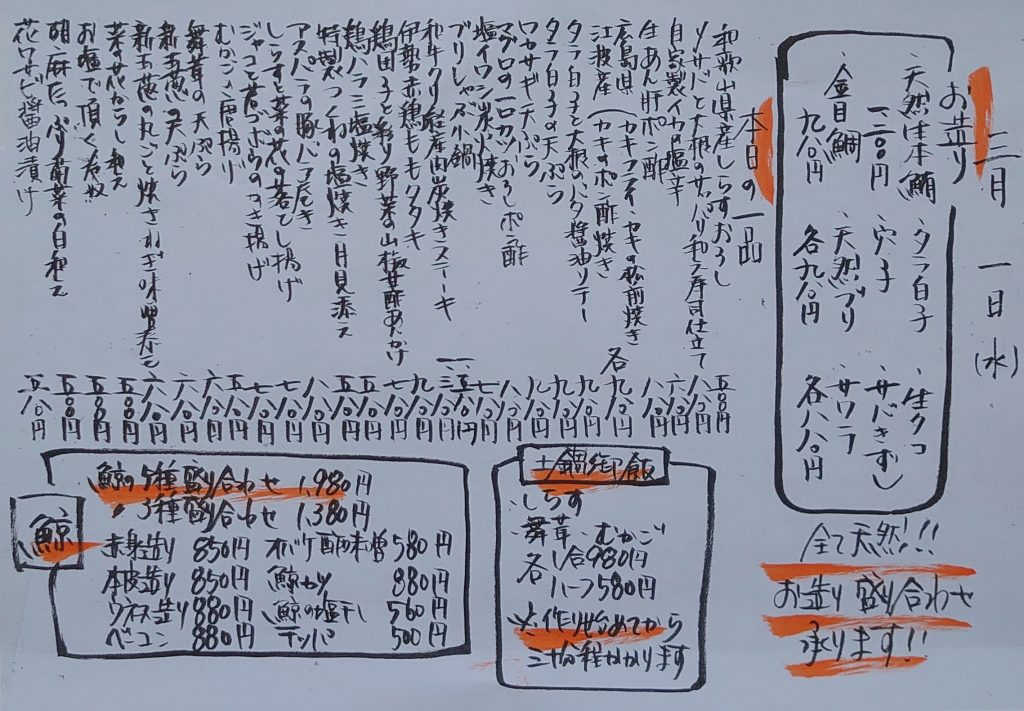 三月 一日(水)
お造り
・天然生本鮪
一二〇〇円
・金目鯛
九八〇円
・タラ白子
・穴子
・天然ブリ
各九八〇円
・生タコ
・サバきずし
・サワラ
各八八〇円
全て天然!!
お造り盛り合わせ
承ります!!
本日の一品
和歌山県産しらすおろし 五〇〇円
〆サバと大根のサッパリ和え寿司仕立て 八八〇円
自家製イカの塩辛 六八〇円
生あん肝ポン酢 八八〇円
広島県(カキフライ・カキの松前焼き
江波産(カキのポン酢焼き 各九八〇円
タラ白子と大根のバタ醬油ソテー 九八〇円
タラ白子の天ぷら 九八〇円
ワカサギ天ぷら
マグロの一口カツおろしポン酢 八八〇円
塩イワシ炭火焼き 七八〇円
ブリしゃぶ小鍋
和牛クリ 炭焼きステーキ
伊勢赤鶏ももタタキ 九八〇円
鶏団子と彩り野菜の山椒甘酢あんかけ 七八〇円
鶏ハラミ塩焼き
特製つくねの塩焼き月見添え
アスパラの豚バラ巻き 八八〇円
しらすと菜の花の落とし揚げ 七八〇円
ジャコと苔ゴボウのかき揚げ 七八〇円
むかごの唐揚げ 五八〇円
舞茸の天ぷら 六八〇円
新玉葱の天ぷら 六八〇円
新玉葱の丸ごと焼きねぎ味噌添え 六八〇円
菜の花からし和え 五〇〇円
お塩で頂く冷奴 五〇〇円
胡麻たっぷり菊菜の白和え 五〇〇円
花ワサビ醬油漬け 五八〇円
土鍋御飯
・しらす
・舞茸・むかご
各1合980円
ハーフ580円
※作り始めてから
三十分程かかります
鯨
鯨の5種盛り合わせ 1,980円
〃 3種盛り合わせ 1,380円
赤身造り 850円 オバケ酢味噌 580円
本皮造り 850円 鯨カツ 880円
ウネス造り 880円 鯨の塩干し 560円
ベーコン 880円 テッパ 500円